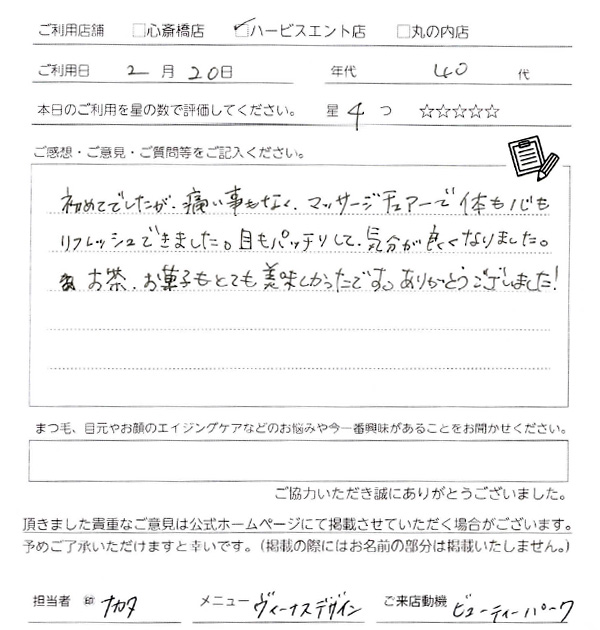 ご利用店舗 □心斎橋店 ☑ハービスエント店 □丸の内店
ご利用日 2月20日 年代 40代
本日のご利用を星の数で評価してください。 星 4 つ ☆☆☆☆☆
ご感想・ご意見・ご質問等をご記入ください。
初めてでしたが、痛い事もなく、マッサージチェアーで体も心も
リフレッシュできました。目もパッチリして、気分が良くなりました。
お茶、お菓子もとても美味しかったです。ありがとうございました!
まつ毛、目元やお顔のエイジングケアなどのお悩みや今一番興味があることをお聞かせください。
ご協力いただき誠にありがとうございました。
頂きました貴重なご意見は公式ホームページにて掲載させていただく場合がございます。
予めご了承いただけますと幸いです。(掲載の際にはお名前の部分は掲載いたしません。)
担当者 ㊞ ナカタ メニュー ヴィーナスデザイン ご来店動機 ビューティーパーク